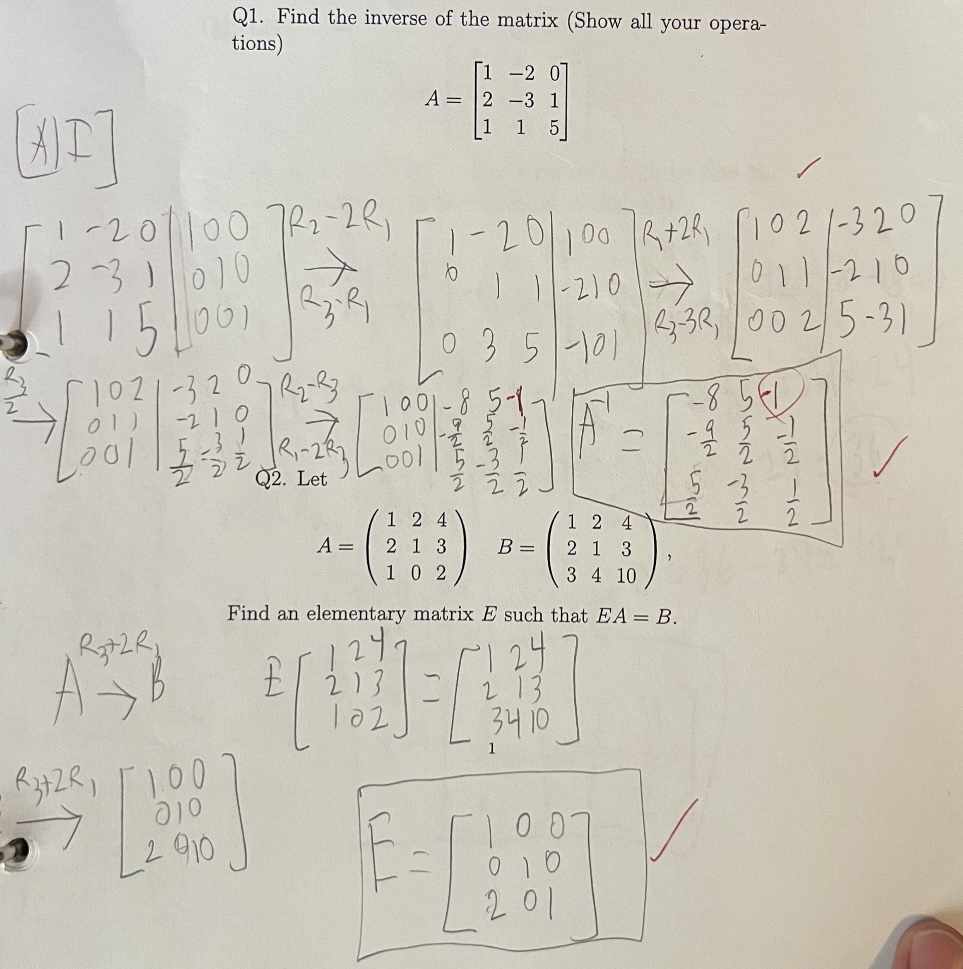 Q1. Find the inverse of the matrix (Show all your opera-
tions)
A = [1 -2 0
2 -3 1
1 1 5]
[A|I]
[1 -2 0 | 1 0 0
2 -3 1 | 0 1 0
1 1 5 | 0 0 1]
R2-2R1
→
R3-R1
[1 -2 0 | 1 0 0
0 1 1 | -2 1 0
0 3 5 | -1 0 1]
R1+2R1
→
R3-3R1
[1 0 2 | -3 2 0
0 1 1 | -2 1 0
0 0 2 | 5 -3 1]
R3/2
→
[1 0 2 | -3 2 0
0 1 1 | -2 1 0
0 0 1 | 5/2 -3/2 1/2]
R2-R3
→
R1-2R3
[1 0 0 | -8 5 -1
0 1 0 | -9/2 5/2 -1/2
0 0 1 | 5/2 -3/2 1/2]
A^-1 = [-8 5 -1
-9/2 5/2 -1/2
5/2 -3/2 1/2]
Q2. Let
A = (1 2 4
2 1 3
1 0 2)
B = (1 2 4
2 1 3
3 4 10),
Find an elementary matrix E such that EA = B.
R3+2R1
A → B
E [1 2 4
2 1 3
1 0 2] = [1 2 4
2 1 3
3 4 10]
1
R3+2R1
→
[1 0 0
0 1 0
2 0 1 0]
E = [1 0 0
0 1 0
2 0 1]